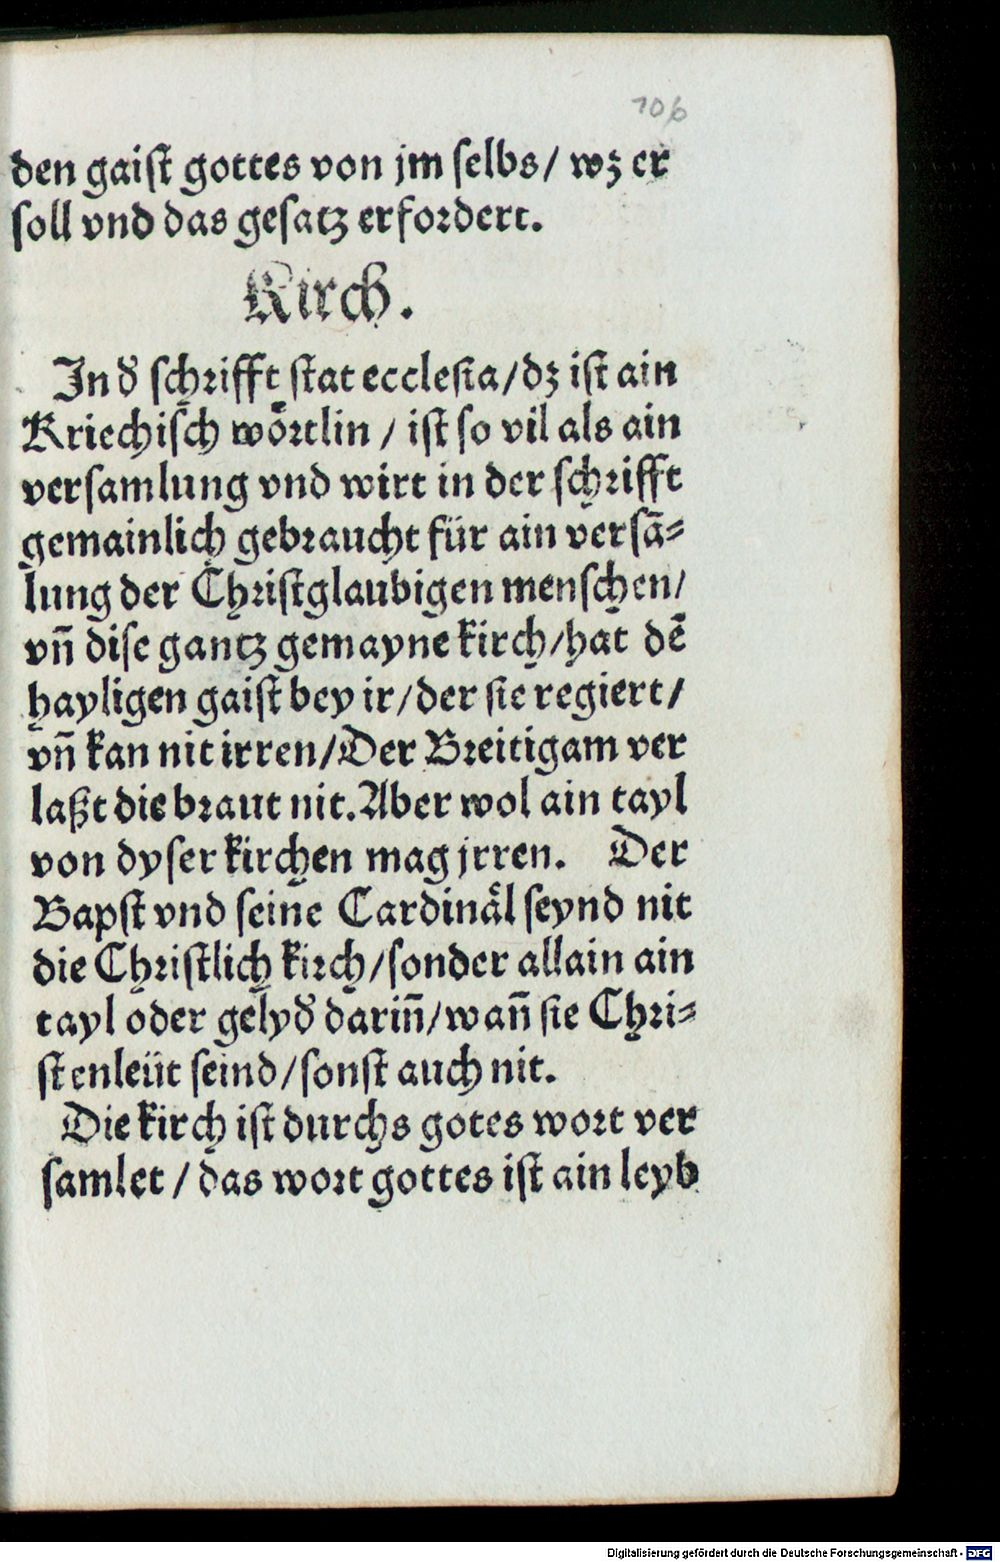 106
den gaist gottes von jm selbs/ wz er
soll vnd das gesatz erfordert.
Kirch.
In đ schrifft stat ecclesia/dz ist ain
Kriechisch woͤrtlin / ist so vil als ain
versamlung vnd wirt in der schrifft
gemainlich gebraucht für ain versā⸗
lung der Christglaubigen menschen/
vñ dise gantz gemayne kirch/hat dē
hayligen gaist bey ir/der sie regiert/
vñ kan nit irren/Der Breitigam ver
laßt die braut nit. Aber wol ain tayl
von dyser kirchen mag jrren. Der
Bapst vnd seine Cardinaͤl seynd nit
die Christlich kirch/sonder allain ain
tayl oder gelyđ dariñ/wañ sie Chri⸗
stenleüt seind/sonst auch nit.
Die kirch ist durchs gotes wort ver
samlet / das wort gottes ist ain leyb
Digitalisierung gefördert durch die Deutsche Forschungsgemeinschaft - DFG